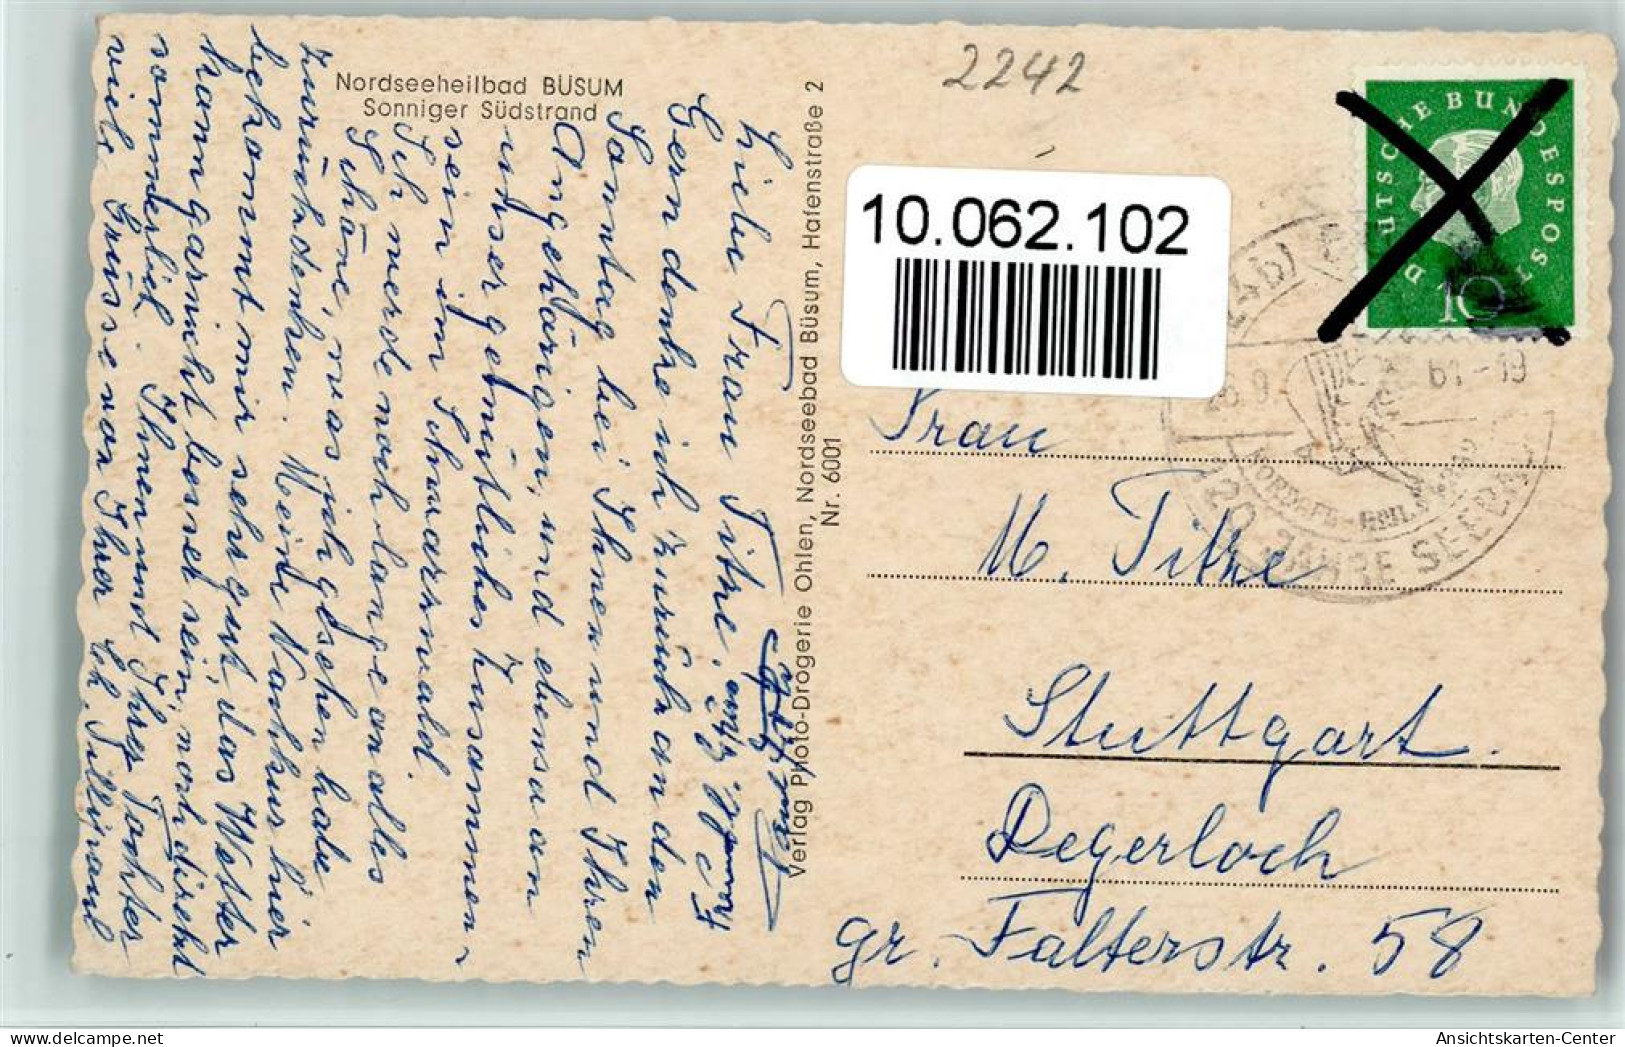 Nordseeheilbad BÜSUM
Sonniger Südstrand
2242
Liebe Frau Titze.
Gern denke ich zurück an den
Sonntag bei Ihnen und Ihren
Angehörigen, und ebenso an
unser gemütliches Zusammen-
sein im Schwarzwald.
Ich werde noch lange an alles
Schöne, was ich gesehen habe
zurückdenken. Meine Nachkur hier
bekommt mir sehr gut, das Wetter
kann garnicht besser sein, noch direkt
sommerlich. Ihnen und Ihrer Tochter
viele Grüsse von Ihrer
Verlag Photo-Drogerie Ohlen, Nordseebad Büsum, Hafenstraße 2
Nr. 6001
10.062.102
DEUTSCHE BUNDESPOST
10
61-19
JAHRE SEEBAD
Frau
M. Titze
Stuttgart.
Degerloch
gr. Falterstr. 58
Ansichtskarten-Center